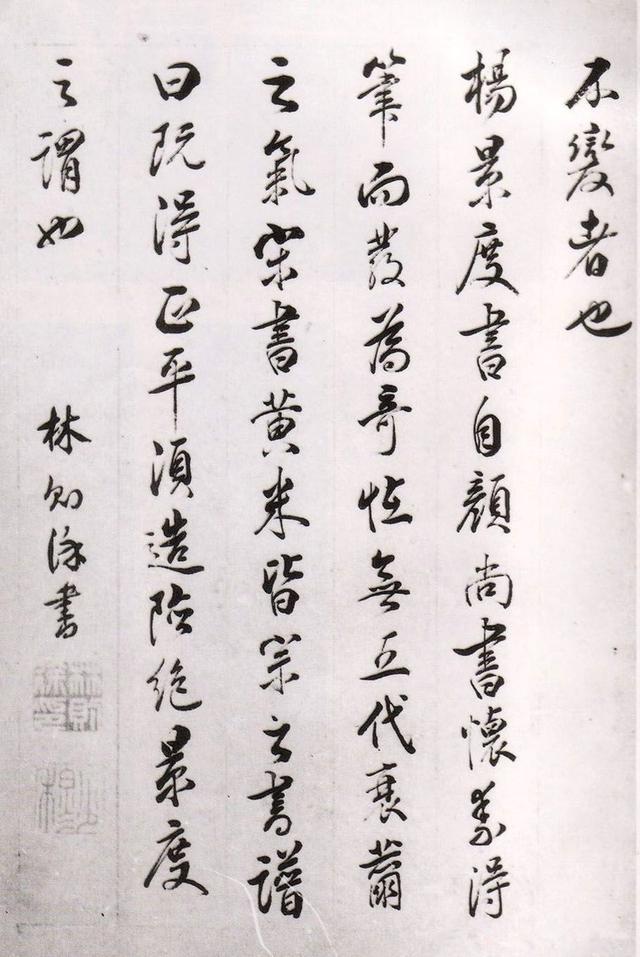 不變者也
楊景度書自顏尚書懷素得
筆而發為奇恠無五代衰薾
之氣宋書黃米皆宗之書譜
曰既得正平須造險絕景度
之謂也 林則徐書
林則徐印